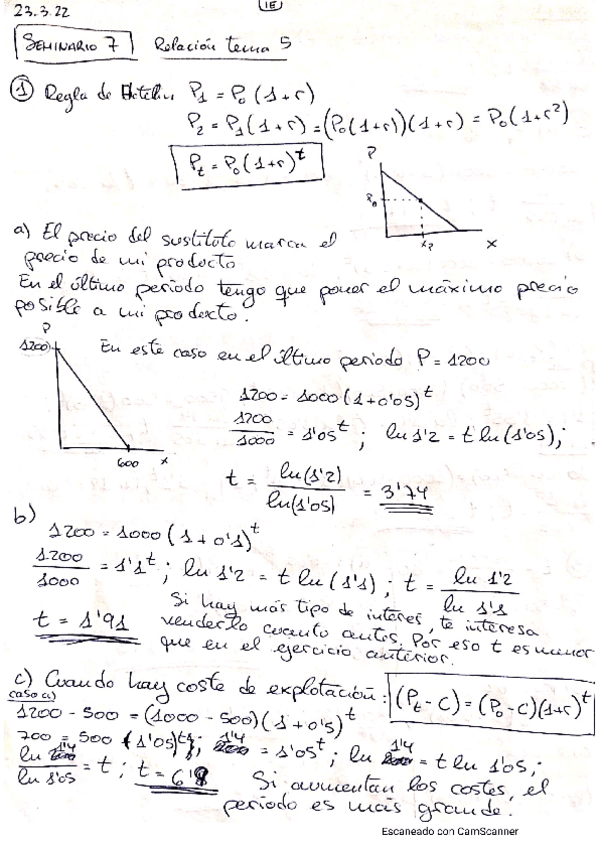 23.3.22
1E
SEMINARIO 7 Relación tema 5
① Regla de Hotelling P₁ = P₀(1+r)
P₂ = P₁(1+r) = (P₀(1+r))(1+r) = P₀(1+r²)
Pt = P₀(1+r)^t
P
x
a) El precio del sustituto marca el
precio de mi producto
En el último periodo tengo que poner el máximo precio
posible a mi producto.
P
1200
600 x
En este caso en el último periodo P = 1200
1200 = 1000(1+0'05)^t
1200/1000 = 1'05^t ; ln 1'2 = t ln(1'05);
t = ln(1'2)/ln(1'05) = 3'74
b)
1200 = 1000(1+0'1)^t
1200/1000 = 1'1^t ; ln 1'2 = t ln(1'1) ; t = ln 1'2/ln 1'1
t = 1'91
Si hay más tipo de interés, te interesa
venderlo cuanto antes. Por eso t es menor
que en el ejercicio anterior.
c) Cuando hay coste de explotación: (Pt - C) = (P₀ - C)(1+r)^t
caso a)
1200 - 500 = (1000 - 500)(1+0'5)^t
700 = 500 (1'05)^t ; 1'4 = 1'05^t ; ln 1'4 = t ln 1'05;
ln 1'4/ln 1'05 = t ; t = 6'8
Si aumentan los costes, el
periodo es más grande.
Escaneado con CamScanner